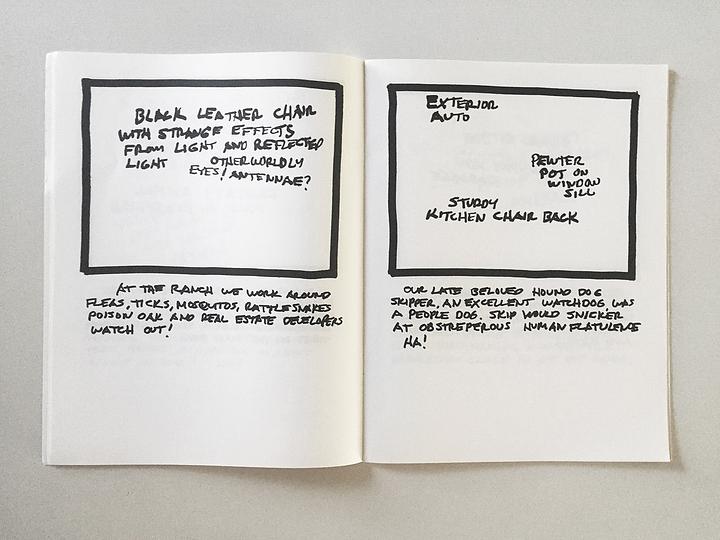 BLACK LEATHER CHAIR
WITH STRANGE EFFECTS
FROM LIGHT AND REFLECTED
LIGHT OTHERWORLDLY
EYES! ANTENNAE?
AT THE RANCH WE WORK AROUND
FLEAS, TICKS, MOSQUITOS, RATTLESNAKES
POISON OAK AND REAL ESTATE DEVELOPERS
WATCH OUT!
EXTERIOR
AUTO
PEWTER
POT ON
WINDOW
SILL
STURDY
KITCHEN CHAIR BACK
OUR LATE BELOVED HOUND DOG
SKIPPER, AN EXCELLENT WATCHDOG, WAS
A PEOPLE DOG. SKIP WOULD SNICKER
AT OBSTREPEROUS HUMAN FLATULENCE
HA!